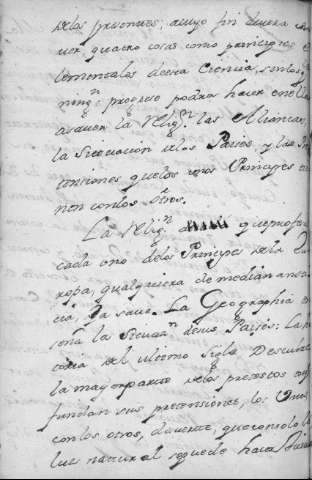 delos presentes; acuyo fin devera
ver, quatro cosas como principios
lementales desta Ciencia, sin los q.
ningn. progreso podra hacer en ella
asaver la Relign. las Alianzas,
la Situacion delos Paises, y las
tensiones quelos unos Principes
nen conlos otros.
La Relign. que profesa
cada uno delos Principes dela
ropa, qualquiera de mediana no
cia, la save. La Geographia
seña la Situan. desus Paises: La
del ultimo Siglo, Descubre
la mayor parte delos pretextos
fundan sus pretensiones, los
conlos otros, de suerte, que con solo la
luz natural sepuede hacer